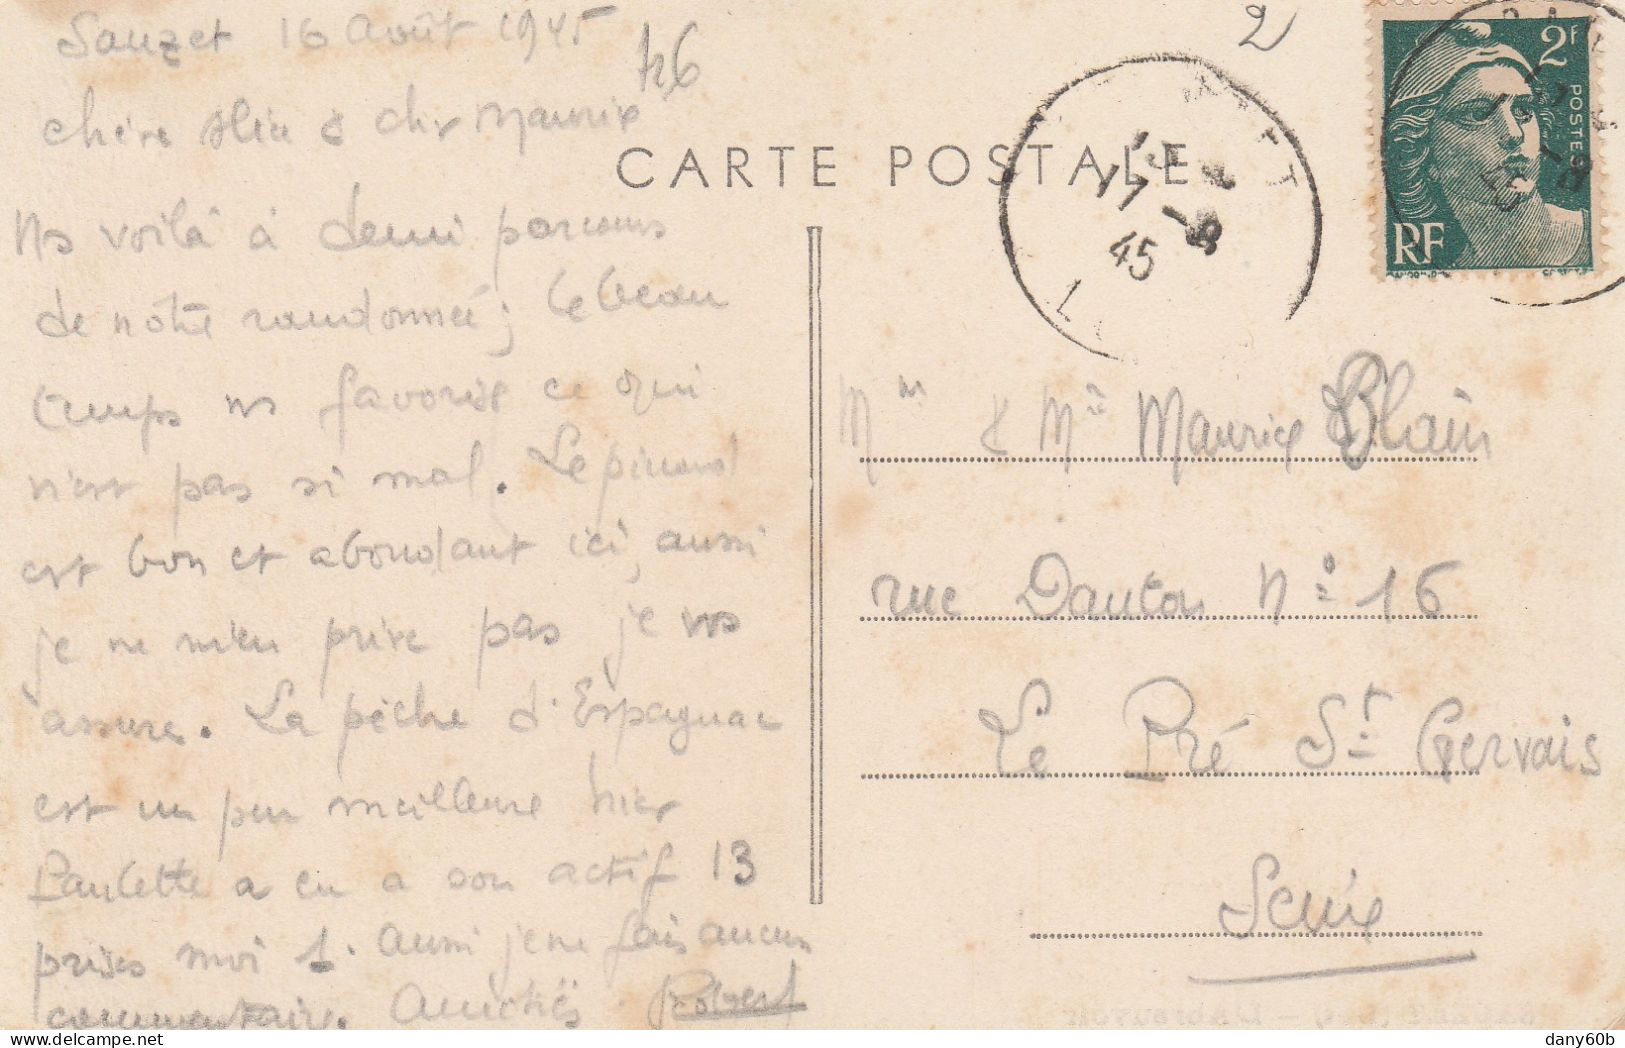 Sauzet 16 Août 1945
k6
2
chère & cher Maurice
CARTE POSTALE
17 - 8
45
2F
POSTES
RF
Ns voilà à demi parcours
de notre randonnée; le beau
temps ns favorise ce qui
n'est pas si mal. Le pinard
est bon et abondant ici, aussi
je ne m'en prive pas je vs
assure. La pêche d'Espagnac
est un peu meilleure hier
Paulette a eu a son actif 13
prises moi 1. Aussi je ne fais aucun
commentaire. Amitiés. Robert
Mr & Me Maurice Blain
rue Danton N° 16
Le Pré St Gervais
Seine
dany60b